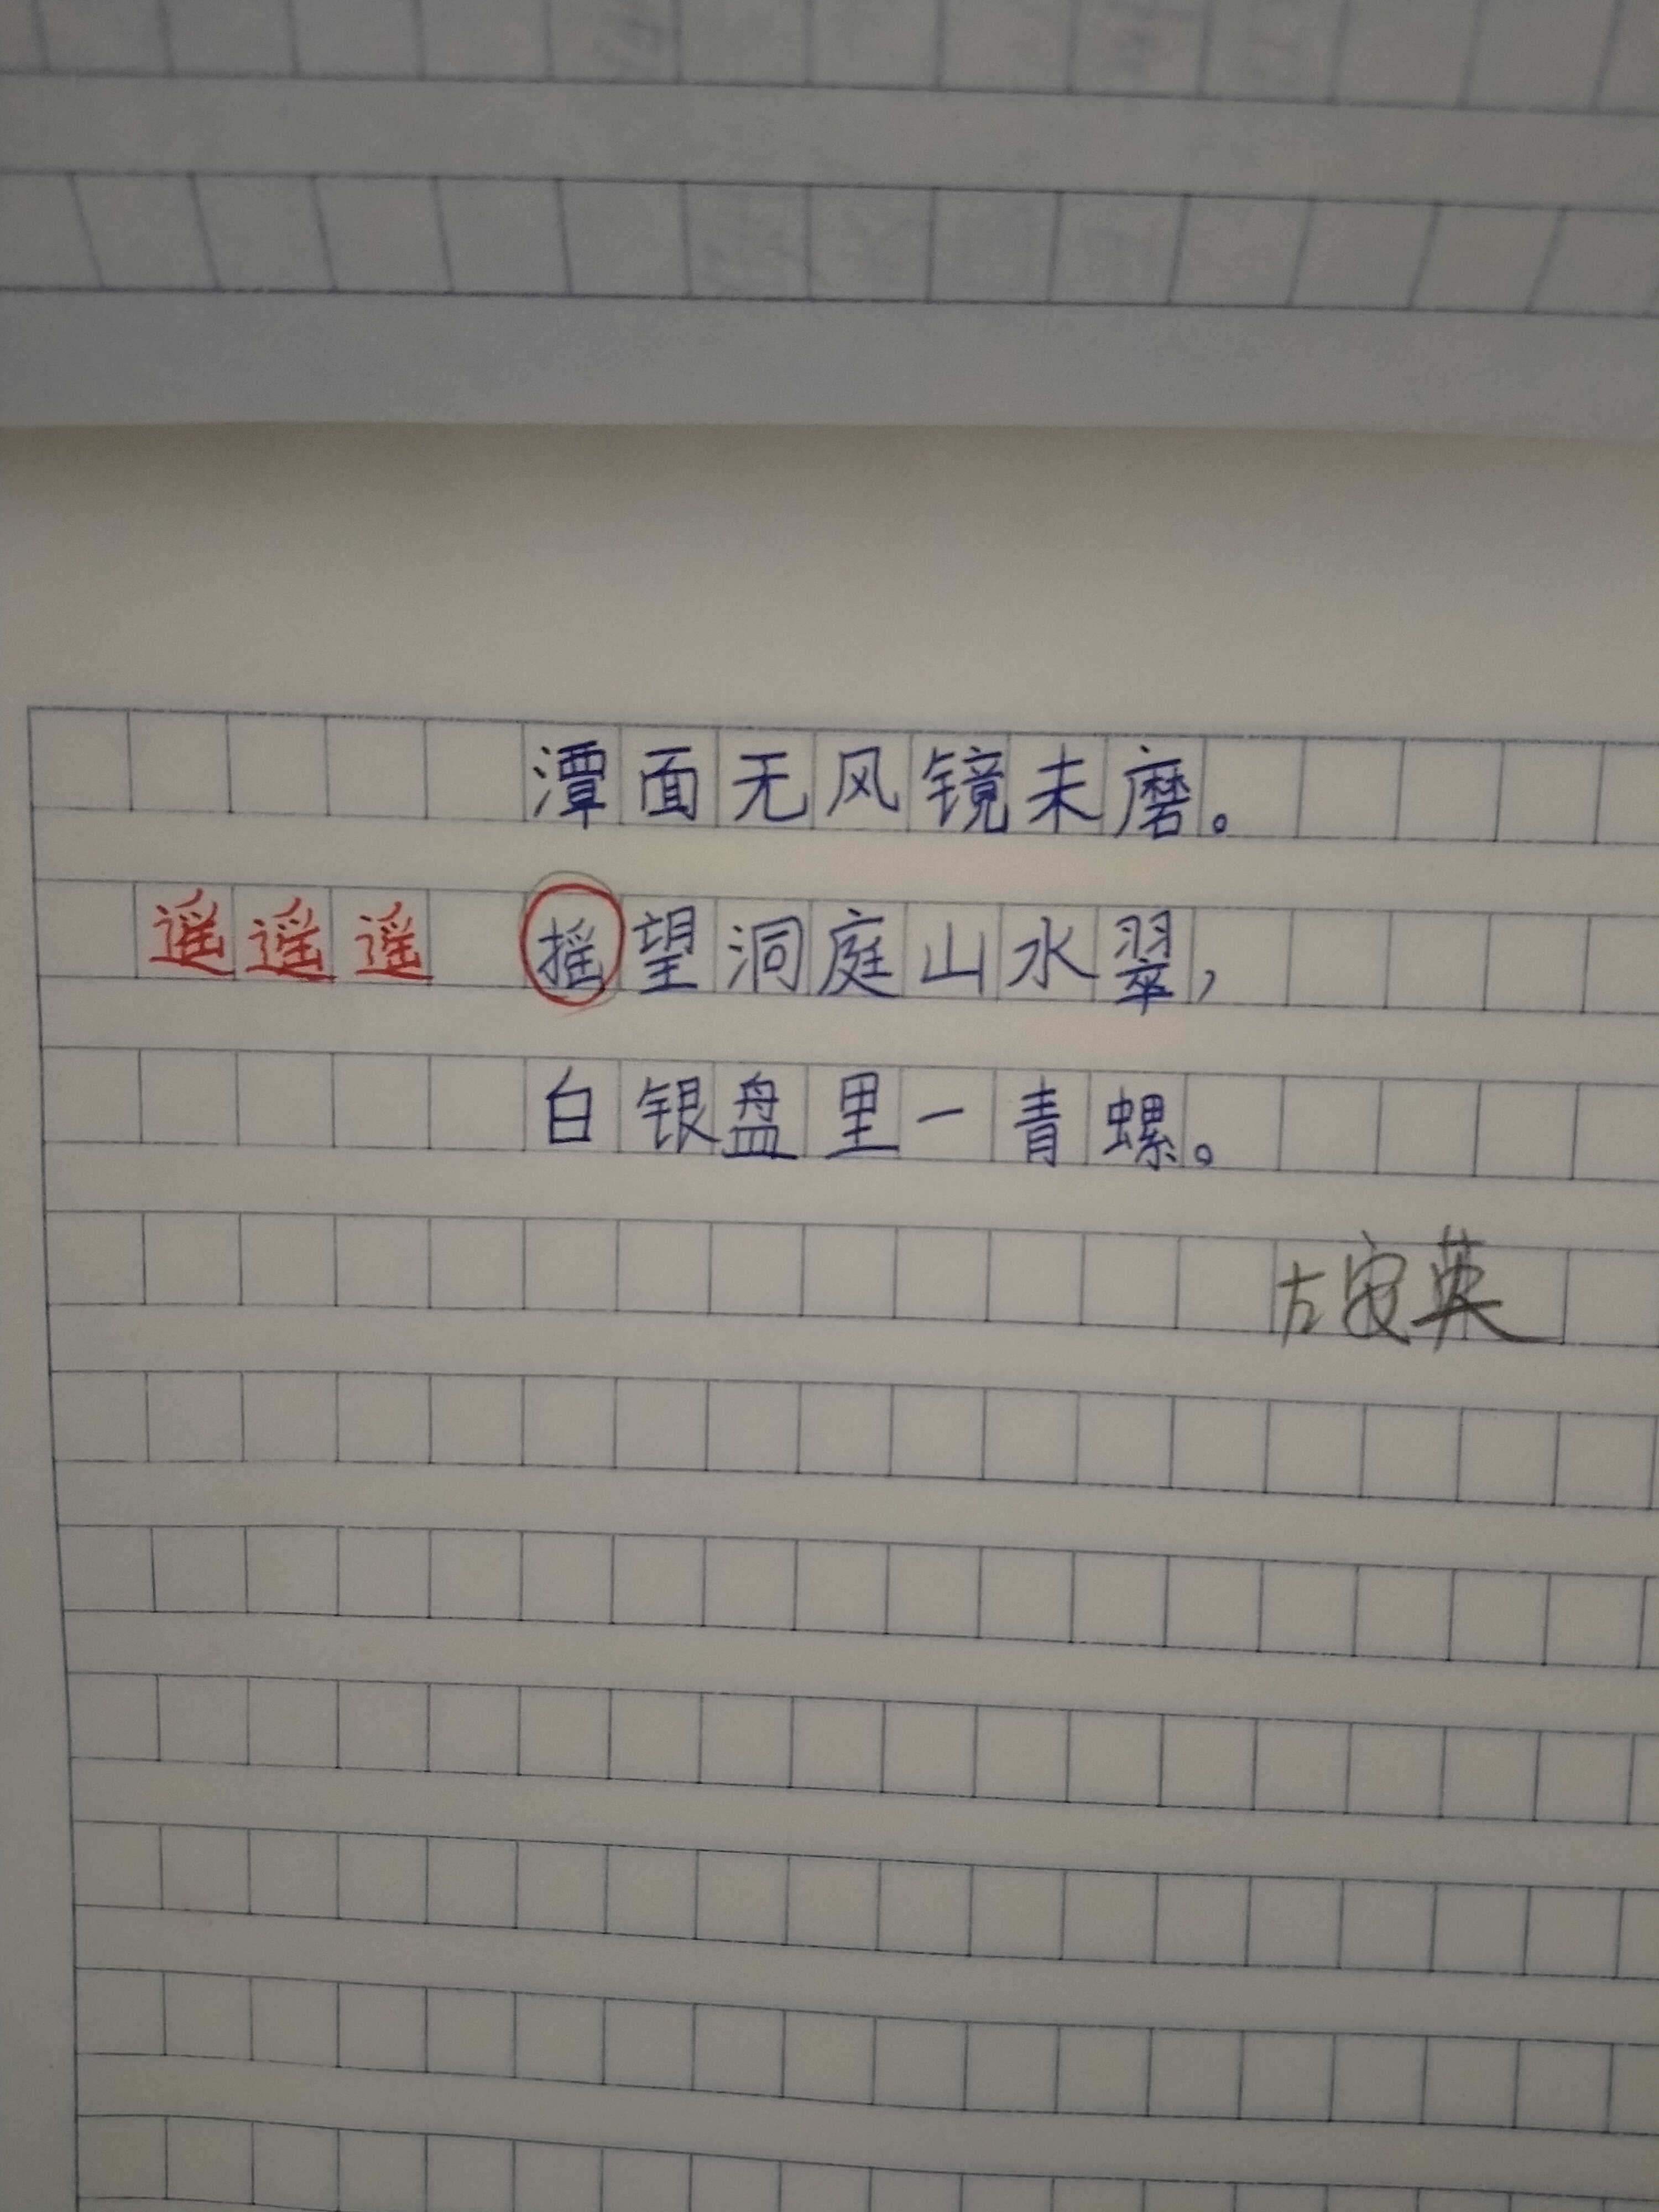 潭面无风镜未磨。
遥遥遥 摇望洞庭山水翠，
白银盘里一青螺。